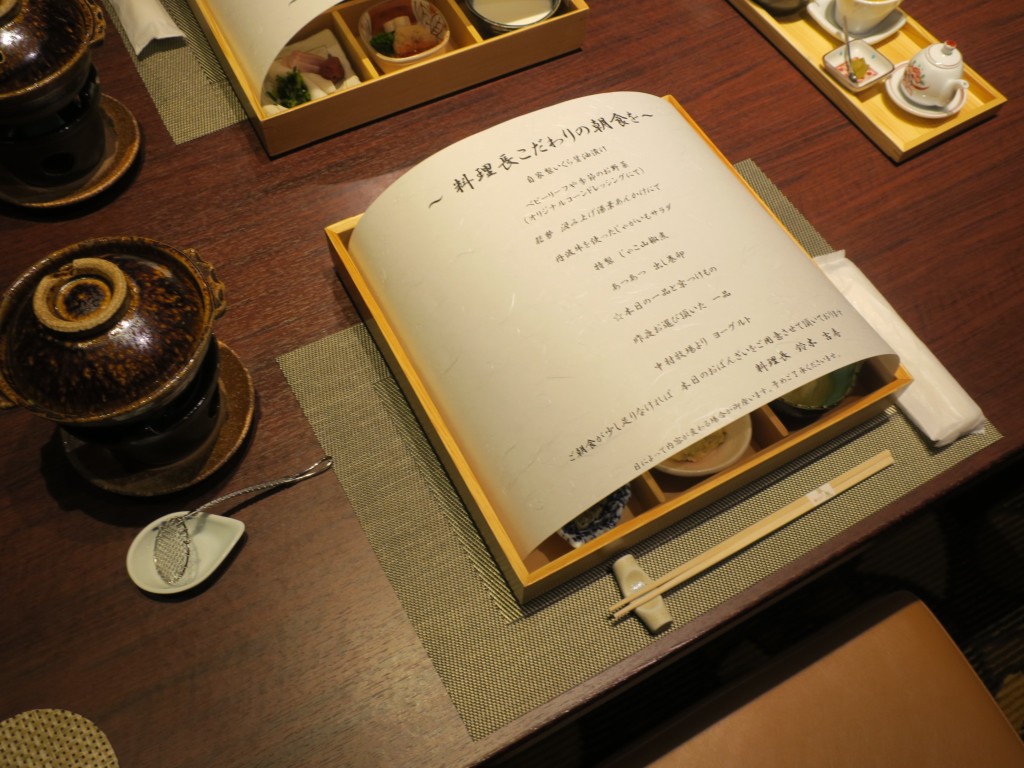 ～ 料理長こだわりの朝食を～
自家製いくら醤油漬け
ベビーリーフや季節のお野菜
(オリジナルコーンドレッシングにて)
汲み上げ湯葉あんかけにて
丹波牛を使ったじゃがいもサラダ
特製 じゃこ山椒煮
あっあつ 出し巻卵
☆本日の一品と食つけもの
昨夜お選び頂いた 一品
中村牧場より ヨーグルト
ご朝食が少し足りなければ 本日のおばんざいをご用意させて頂いております
料理長 鈴木
日によって内容が変わる場合が御座います。予めご了承くださいませ。